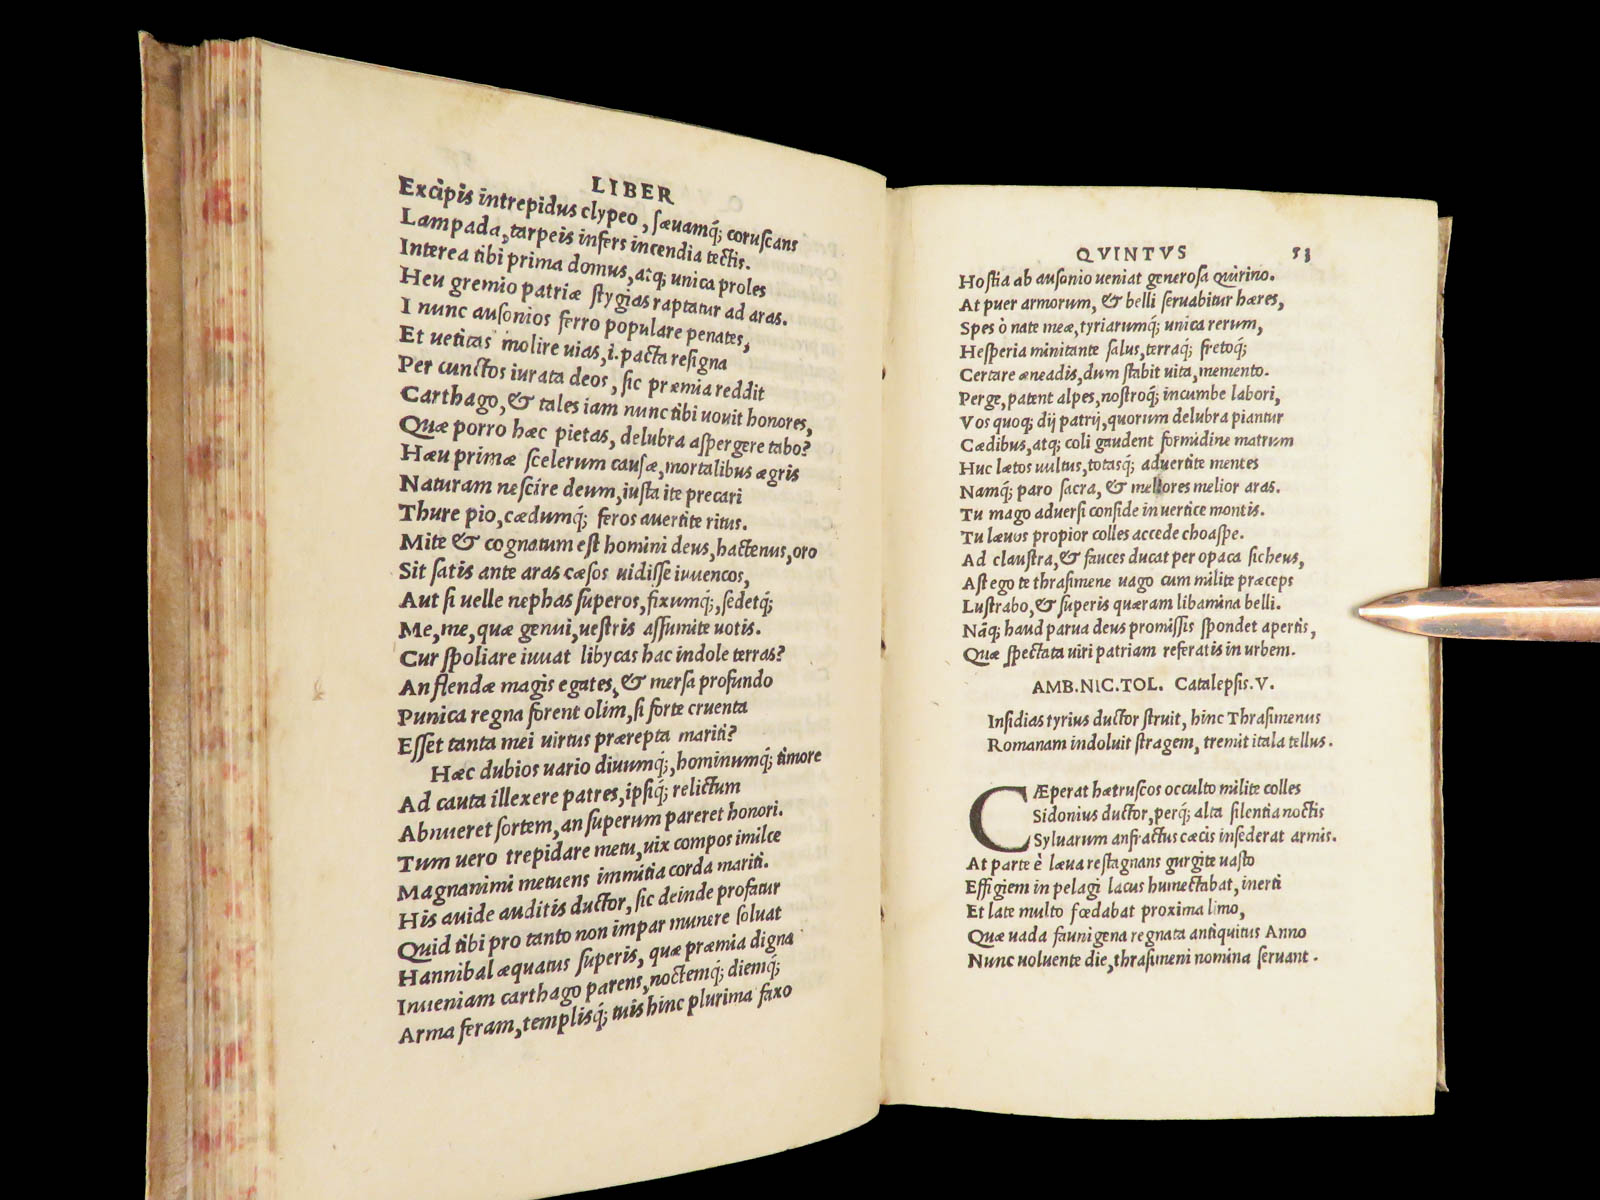 LIBER
Excipis intrepidus clypeo, sæuamq́; coruscans
Lampada, tarpeis infers incendia tectis.
Interea tibi prima domus, atq; unica proles
Heu gremio patriæ stygias raptatur ad aras.
I nunc ausonios ferro populare penates,
Et uetitas molire uias, i. pacta resigna
Per cunctos iurata deos, sic præmia reddit
Carthago, & tales iam nunc tibi uouit honores,
Quæ porro hæc pietas, delubra aspergere tabo?
Hæu primæ scelerum causæ, mortalibus ægris
Naturam nescire deum, iusta ite precari
Thure pio, cædumq́; feros auertite ritus.
Mite & cognatum est homini deus, hactenus, oro
Sit satis ante aras cæsos uidisse iuuencos,
Aut si uelle nephas superos, fixumq́;, sedetq́;
Me, me, quæ genui, uestris assumite uotis.
Cur spoliare iuuat libycas hac indole terras?
An flendæ magis egates, & mersa profundo
Punica regna forent olim, si forte cruenta
Esset tanta mei uirtus prærepta mariti?
Hæc dubios uario diuumq́;, hominumq́; timore
Ad cauta illexere patres, ipsiq́; relictum
Abnueret sortem, an superum pareret honori.
Tum uero trepidare metu, uix compos imilce
Magnanimi metuens immitia corda mariti.
His auide auditis ductor, sic deinde profatur
Quid tibi pro tanto non impar munere soluat
Hannibal æquatus superis, quæ præmia digna
Inueniam carthago parens, noctemq́; diemq́;
Arma feram, templisq́; tuis hinc plurima faxo
QVINTVS 53
Hostia ab ausonio ueniat generosa Quirino.
At puer armorum, & belli seruabitur hæres,
Spes ò nate meæ, tyriarumq́; unica rerum,
Hesperia minitante salus, terraq́; fretoq́;
Certare æneadis, dum stabit uita, memento.
Perge, patent alpes, nostroq́; incumbe labori,
Vos quoq; dij patrij, quorum delubra piantur
Cædibus, atq; coli gaudent formidine matrum
Huc lætos uultus, totasq́; aduertite mentes
Namq́; paro sacra, & meliores melior aras.
Tu mago aduersi conside in uertice montis.
Tu læuos propior colles accede choaspe.
Ad claustra, & fauces ducat per opaca sicheus,
Ast ego te thrasimene uago cum milite præceps
Lustrabo, & superis quæram libamina belli.
Nãq; haud parua deus promissis spondet apertis,
Quæ spectata uiri patriam referatis in urbem.
AMB.NIC.TOL. Catalepsis.V.
Insidias tyrius ductor struit, hinc Thrasimenus
Romanam indoluit stragem, tremit itala tellus.
CÆperat hætruscos occulto milite colles
Sidonius ductor, perq́; alta silentia noctis
Syluarum anfractus cæcis insederat armis.
At parte è læua restagnans gurgite uasto
Effigiem in pelagi lacus humectabat, inerti
Et late multo fœdabat proxima limo,
Quæ uada faunigena regnata antiquitus Anno
Nunc uoluente die, thrasimeni nomina seruant.